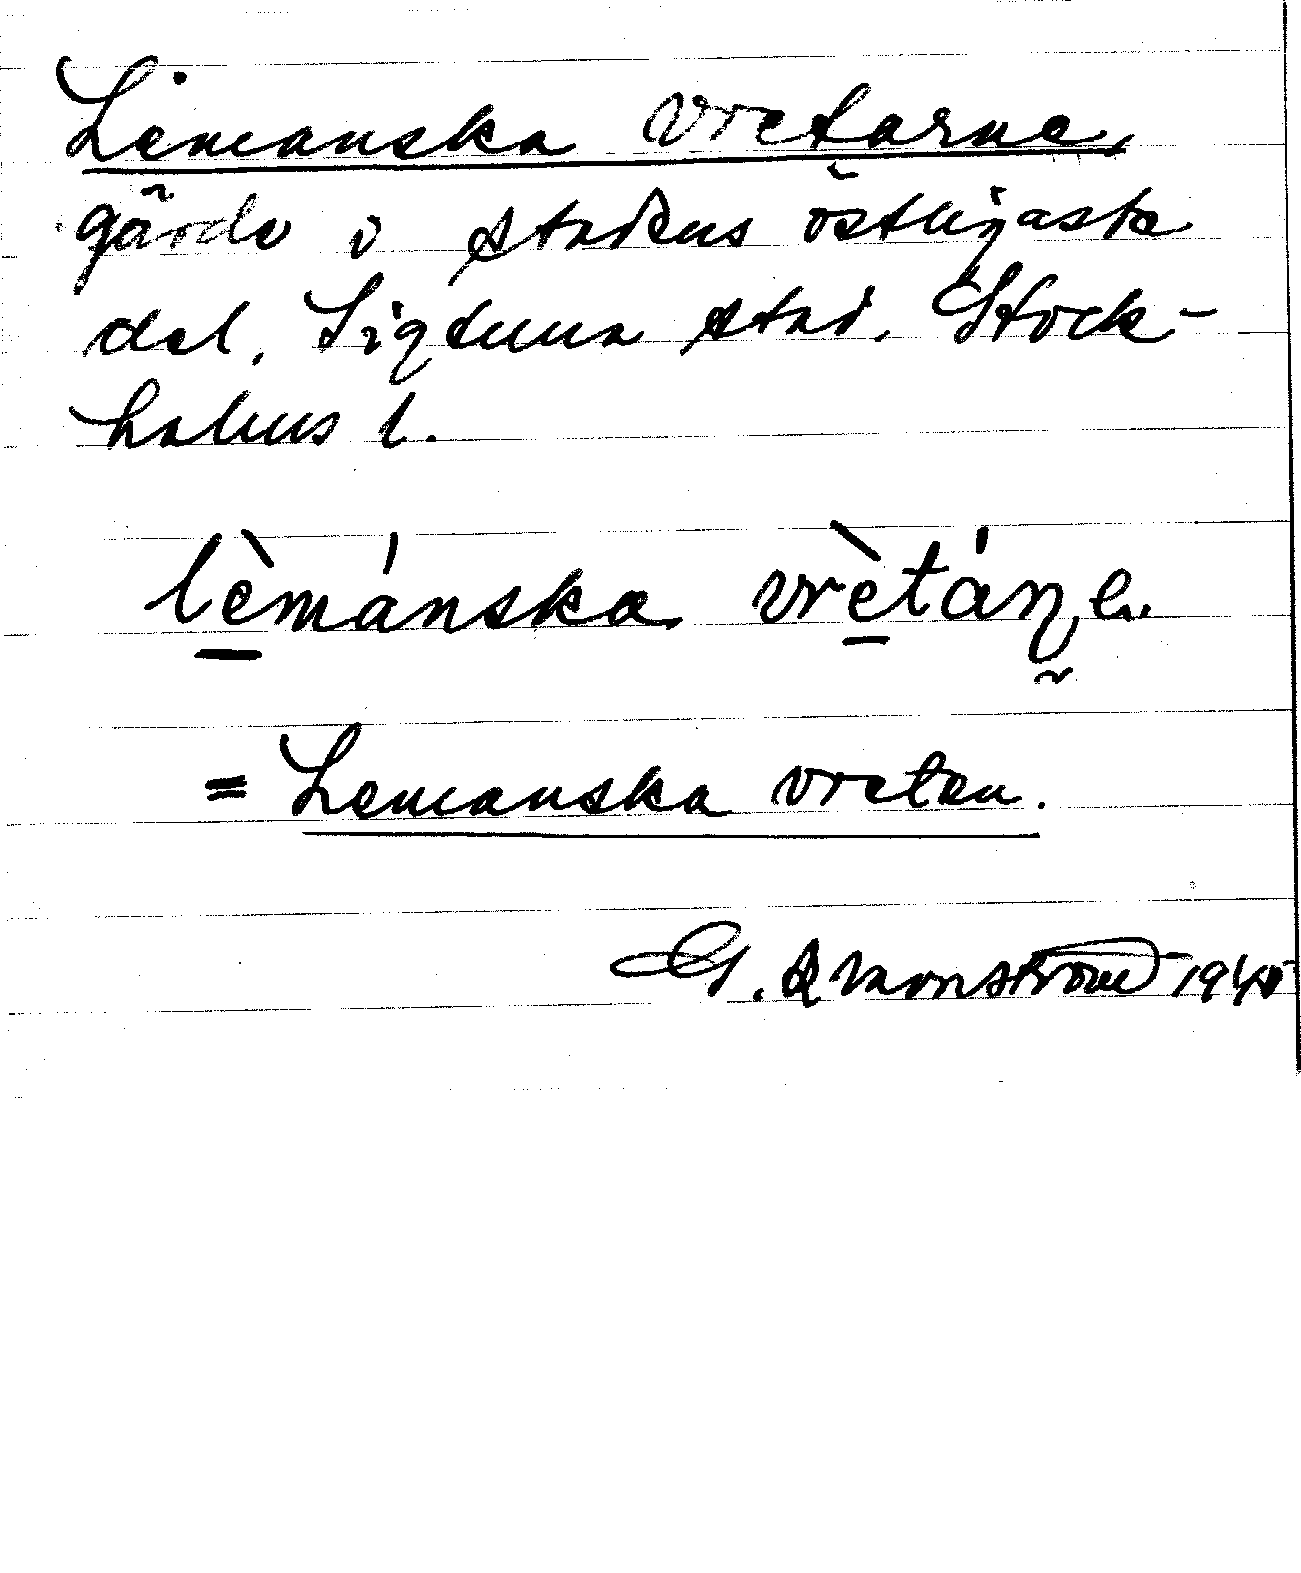 Lemanska Vretarne,
gärde i stadens östligaste
del. Sigtuna stad. Stock-
holms l.
lèmánska vrètáṇe.
= Lemanska vreten.
G. 1940